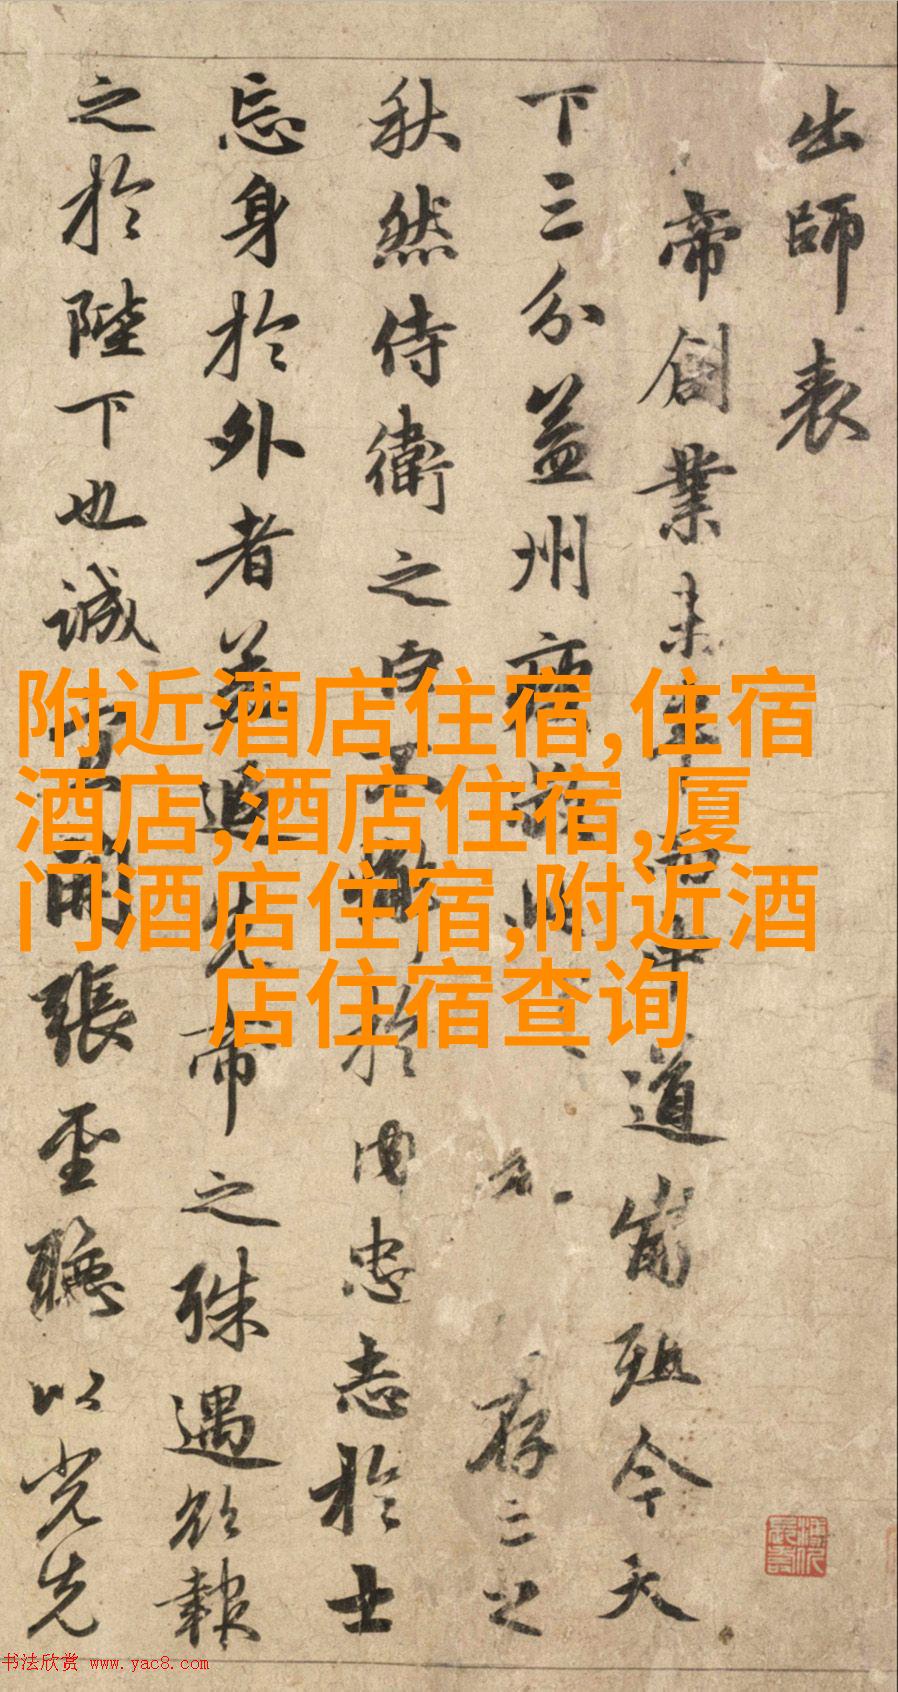 出師表
帝創業未半而中道崩殂今天
下三分益州疲
存亡之
秋然侍衛之臣不懈於內忠志於士
忘身於外者蓋追先帝之殊遇欲報
之於陛下也誠宜開張聖聽以光先
附近酒店住宿,住宿
酒店,酒店住宿,厦
门酒店住宿,附近酒
店住宿查询
书法欣赏 www.yac8.com